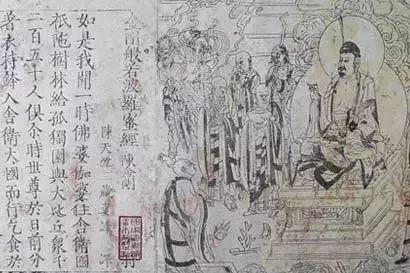 金剛般若波羅蜜經
陳天竺三藏
如是我聞一時佛婆伽婆住舍衛國
祇陁樹林給孤獨園與大比丘衆千
二百五十人俱尒時世尊於日前分
著衣持鉢入舍衛大國而行乞食於